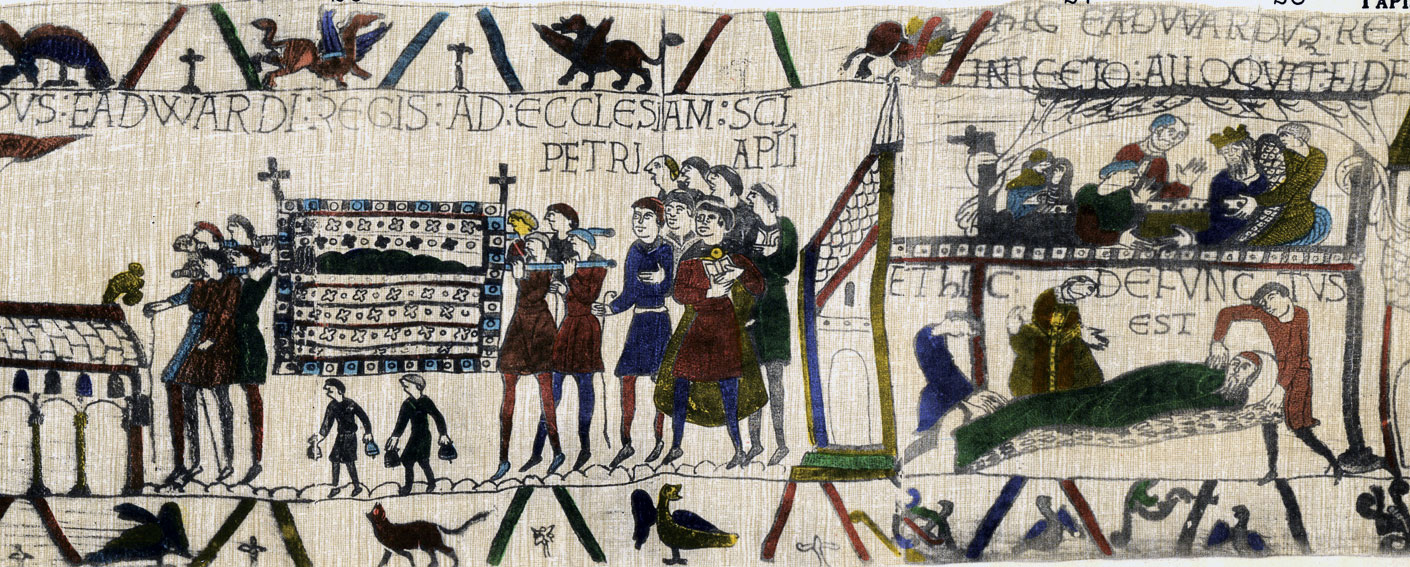 PVS: EADWARDI: REGIS: AD: ECCLESIAM: SCI
PETRI APLI
hIC EADVVARDVS: REX
IN LECTO: ALLOQVIT: FIDE
ET hIC: DEFVNCTVS
EST